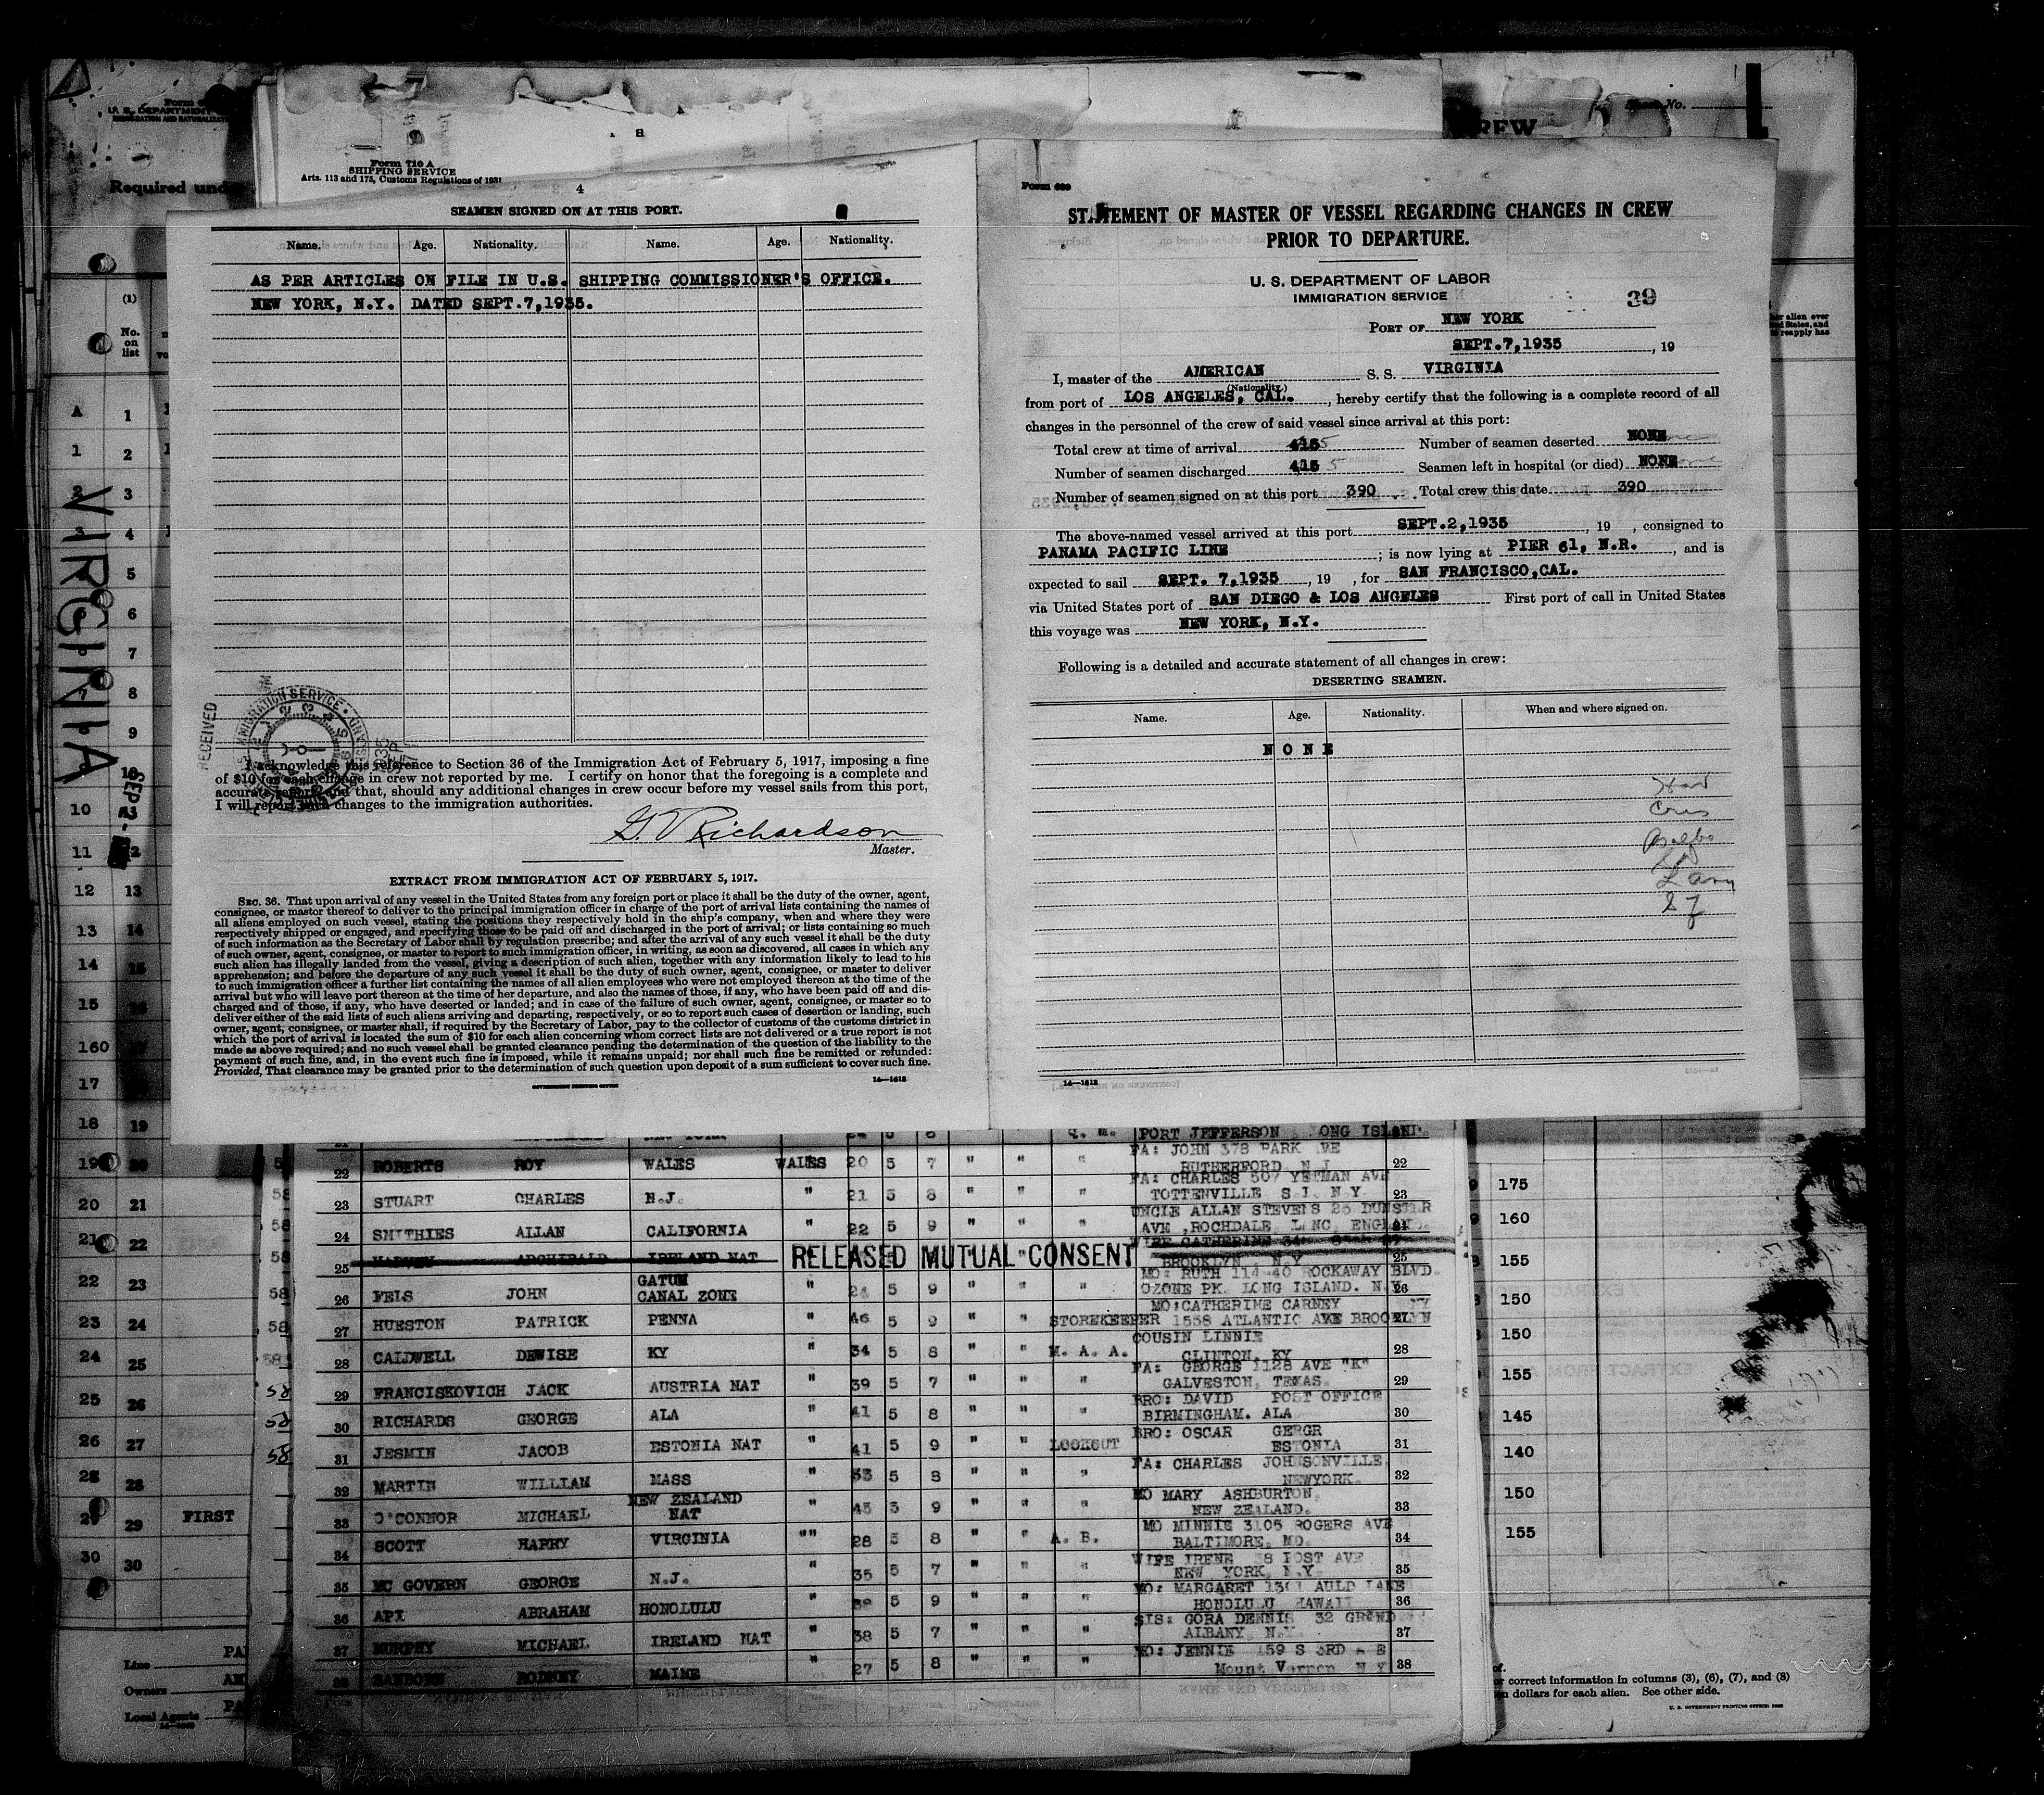 Form 710 A
SHIPPING SERVICE
Arts. 113 and 175, Customs Regulations of 1931
4
SEAMEN SIGNED ON AT THIS PORT.
Name. Age. Nationality. Name. Age. Nationality.
AS PER ARTICLES ON FILE IN U.S. SHIPPING COMMISSIONER'S OFFICE.
NEW YORK, N.Y. DATED SEPT.7,1935.
RECEIVED
I acknowledge this reference to Section 36 of the Immigration Act of February 5, 1917, imposing a fine
of $10 for each change in crew not reported by me. I certify on honor that the foregoing is a complete and
accurate report and that, should any additional changes in crew occur before my vessel sails from this port,
I will report such changes to the immigration authorities.
G. V Richardson
Master.
EXTRACT FROM IMMIGRATION ACT OF FEBRUARY 5, 1917.
SEC. 36. That upon arrival of any vessel in the United States from any foreign port or place it shall be the duty of the owner, agent,
consignee, or master thereof to deliver to the principal immigration officer in charge of the port of arrival lists containing the names of
all aliens employed on such vessel, stating the positions they respectively hold in the ship's company, when and where they were
respectively shipped or engaged, and specifying those to be paid off and discharged in the port of arrival; or lists containing so much
of such information as the Secretary of Labor shall by regulation prescribe; and after the arrival of any such vessel it shall be the duty
of such owner, agent, consignee, or master to report to such immigration officer, in writing, as soon as discovered, all cases in which any
such alien has illegally landed from the vessel, giving a description of such alien, together with any information likely to lead to his
apprehension; and before the departure of any such vessel it shall be the duty of such owner, agent, consignee, or master to deliver
to such immigration officer a further list containing the names of all alien employees who were not employed thereon at the time of the
arrival but who will leave port thereon at the time of her departure, and also the names of those, if any, who have been paid off and dis-
charged and of those, if any, who have deserted or landed; and in case of the failure of such owner, agent, consignee, or master so to
deliver either of the said lists of such aliens arriving and departing, respectively, or so to report such cases of desertion or landing, such
owner, agent, consignee, or master shall, if required by the Secretary of Labor, pay to the collector of customs of the customs district in
which the port of arrival is located the sum of $10 for each alien concerning whom correct lists are not delivered or a true report is not
made as above required; and no such vessel shall be granted clearance pending the determination of the question of the liability to the
payment of such fine, and, in the event such fine is imposed, while it remains unpaid; nor shall such fine be remitted or refunded:
Provided, That clearance may be granted prior to the determination of such question upon deposit of a sum sufficient to cover such fine.
GOVERNMENT PRINTING OFFICE 14—1612
Form 689
STATEMENT OF MASTER OF VESSEL REGARDING CHANGES IN CREW
PRIOR TO DEPARTURE.
U. S. DEPARTMENT OF LABOR
IMMIGRATION SERVICE
39
PORT OF NEW YORK
SEPT.7,1935, 19
I, master of the AMERICAN S. S. VIRGINIA
(Nationality.)
from port of LOS ANGELES, CAL., hereby certify that the following is a complete record of all
changes in the personnel of the crew of said vessel since arrival at this port:
Total crew at time of arrival 415 5 Number of seamen deserted NONE
Number of seamen discharged 415 5 Seamen left in hospital (or died) NONE
Number of seamen signed on at this port 390 Total crew this date 390
The above-named vessel arrived at this port SEPT.2,1935, 19 , consigned to
PANAMA PACIFIC LINE ; is now lying at PIER 61, N.R., and is
expected to sail SEPT. 7,1935, 19 , for SAN FRANCISCO,CAL.
via United States port of SAN DIEGO & LOS ANGELES First port of call in United States
this voyage was NEW YORK, N.Y.
Following is a detailed and accurate statement of all changes in crew:
DESERTING SEAMEN.
Name. Age. Nationality. When and where signed on.
N O N E
14—1612
VIRGINIA
Required und
(1)
No. on list
FIRST
Line
Owners
Local Agents
PORT JEFFERSON LONG ISLAND
22 ROBERTS ROY WALES WALES 20 5 7 " " " FA: JOHN 378 PARK AVE RUTHERFORD N J 22
23 STUART CHARLES N.J. " 21 5 8 " " " FA: CHARLES 507 YETMAN AVE TOTTENVILLE S I. N Y 23
24 SMITHIES ALLAN CALIFORNIA " 22 5 9 " " " UNCLE ALLAN STEVENS 25 DUNSTER AVE ,ROCHDALE LANC ENGLAND
25 ARCHIBALD IRELAND NAT RELEASED MUTUAL CONSENT WIFE CATHERINE BROOKLYN N.Y 25
26 FEIS JOHN GATUN CANAL ZONE " 5 9 " " " MO: RUTH 114-40 ROCKAWAY BLVD. OZONE PK. LONG ISLAND. N.Y. 26
27 HUESTON PATRICK PENNA " 46 5 9 " " STOREKEEPER MO:CATHERINE CARNEY 1558 ATLANTIC AVE BROOKLYN NY
28 CALDWELL DEWISE KY " 34 5 8 " " M. A. A. COUSIN LINNIE CLINTON, KY 28
29 FRANCISKOVICH JACK AUSTRIA NAT " 39 5 7 " " " FA: GEORGE 1128 AVE "K" GALVESTON, TEXAS. 29
30 RICHARDS GEORGE ALA " 41 5 8 " " " BRO: DAVID POST OFFICE BIRMINGHAM. ALA 30
31 JESMIN JACOB ESTONIA NAT " 41 5 9 " " LOOKOUT BRO: OSCAR GERGR ESTONIA 31
32 MARTIN WILLIAM MASS " 33 5 8 " " " FA: CHARLES JOHNSONVILLE NEWYORK. 32
33 O'CONNOR MICHAEL NEW ZEALAND NAT " 45 5 9 " " " MO MARY ASHBURTON, NEW ZEALAND. 33
34 SCOTT HARRY VIRGINIA "" 28 5 8 " " A. B. MO MINNIE 3105 ROGERS AVE BALTIMORE, MD. 34
35 MC GOVERN GEORGE N.J. " 35 5 7 " " " WIFE IRENE 38 POST AVE NEW YORK, N.Y. 35
36 API ABRAHAM HONOLULU " 5 9 " " " MO: MARGARET 1301 AULD LANE HONOLULU HAWAII 36
37 MURPHY MICHAEL IRELAND NAT " 38 5 7 " " " SIS: CORA DENNIS 32 GRAND ALBANY, N.Y. 37
38 SANBORN RODNEY MAINE " 27 5 8 " " " MO: JENNIE 159 S 3RD AVE Mount Vernon N Y 38
175
160
155
150
150
155
145
140
150
155
or correct information in columns (3), (6), (7), and (8)
dollars for each alien. See other side.
U. S. GOVERNMENT PRINTING OFFICE